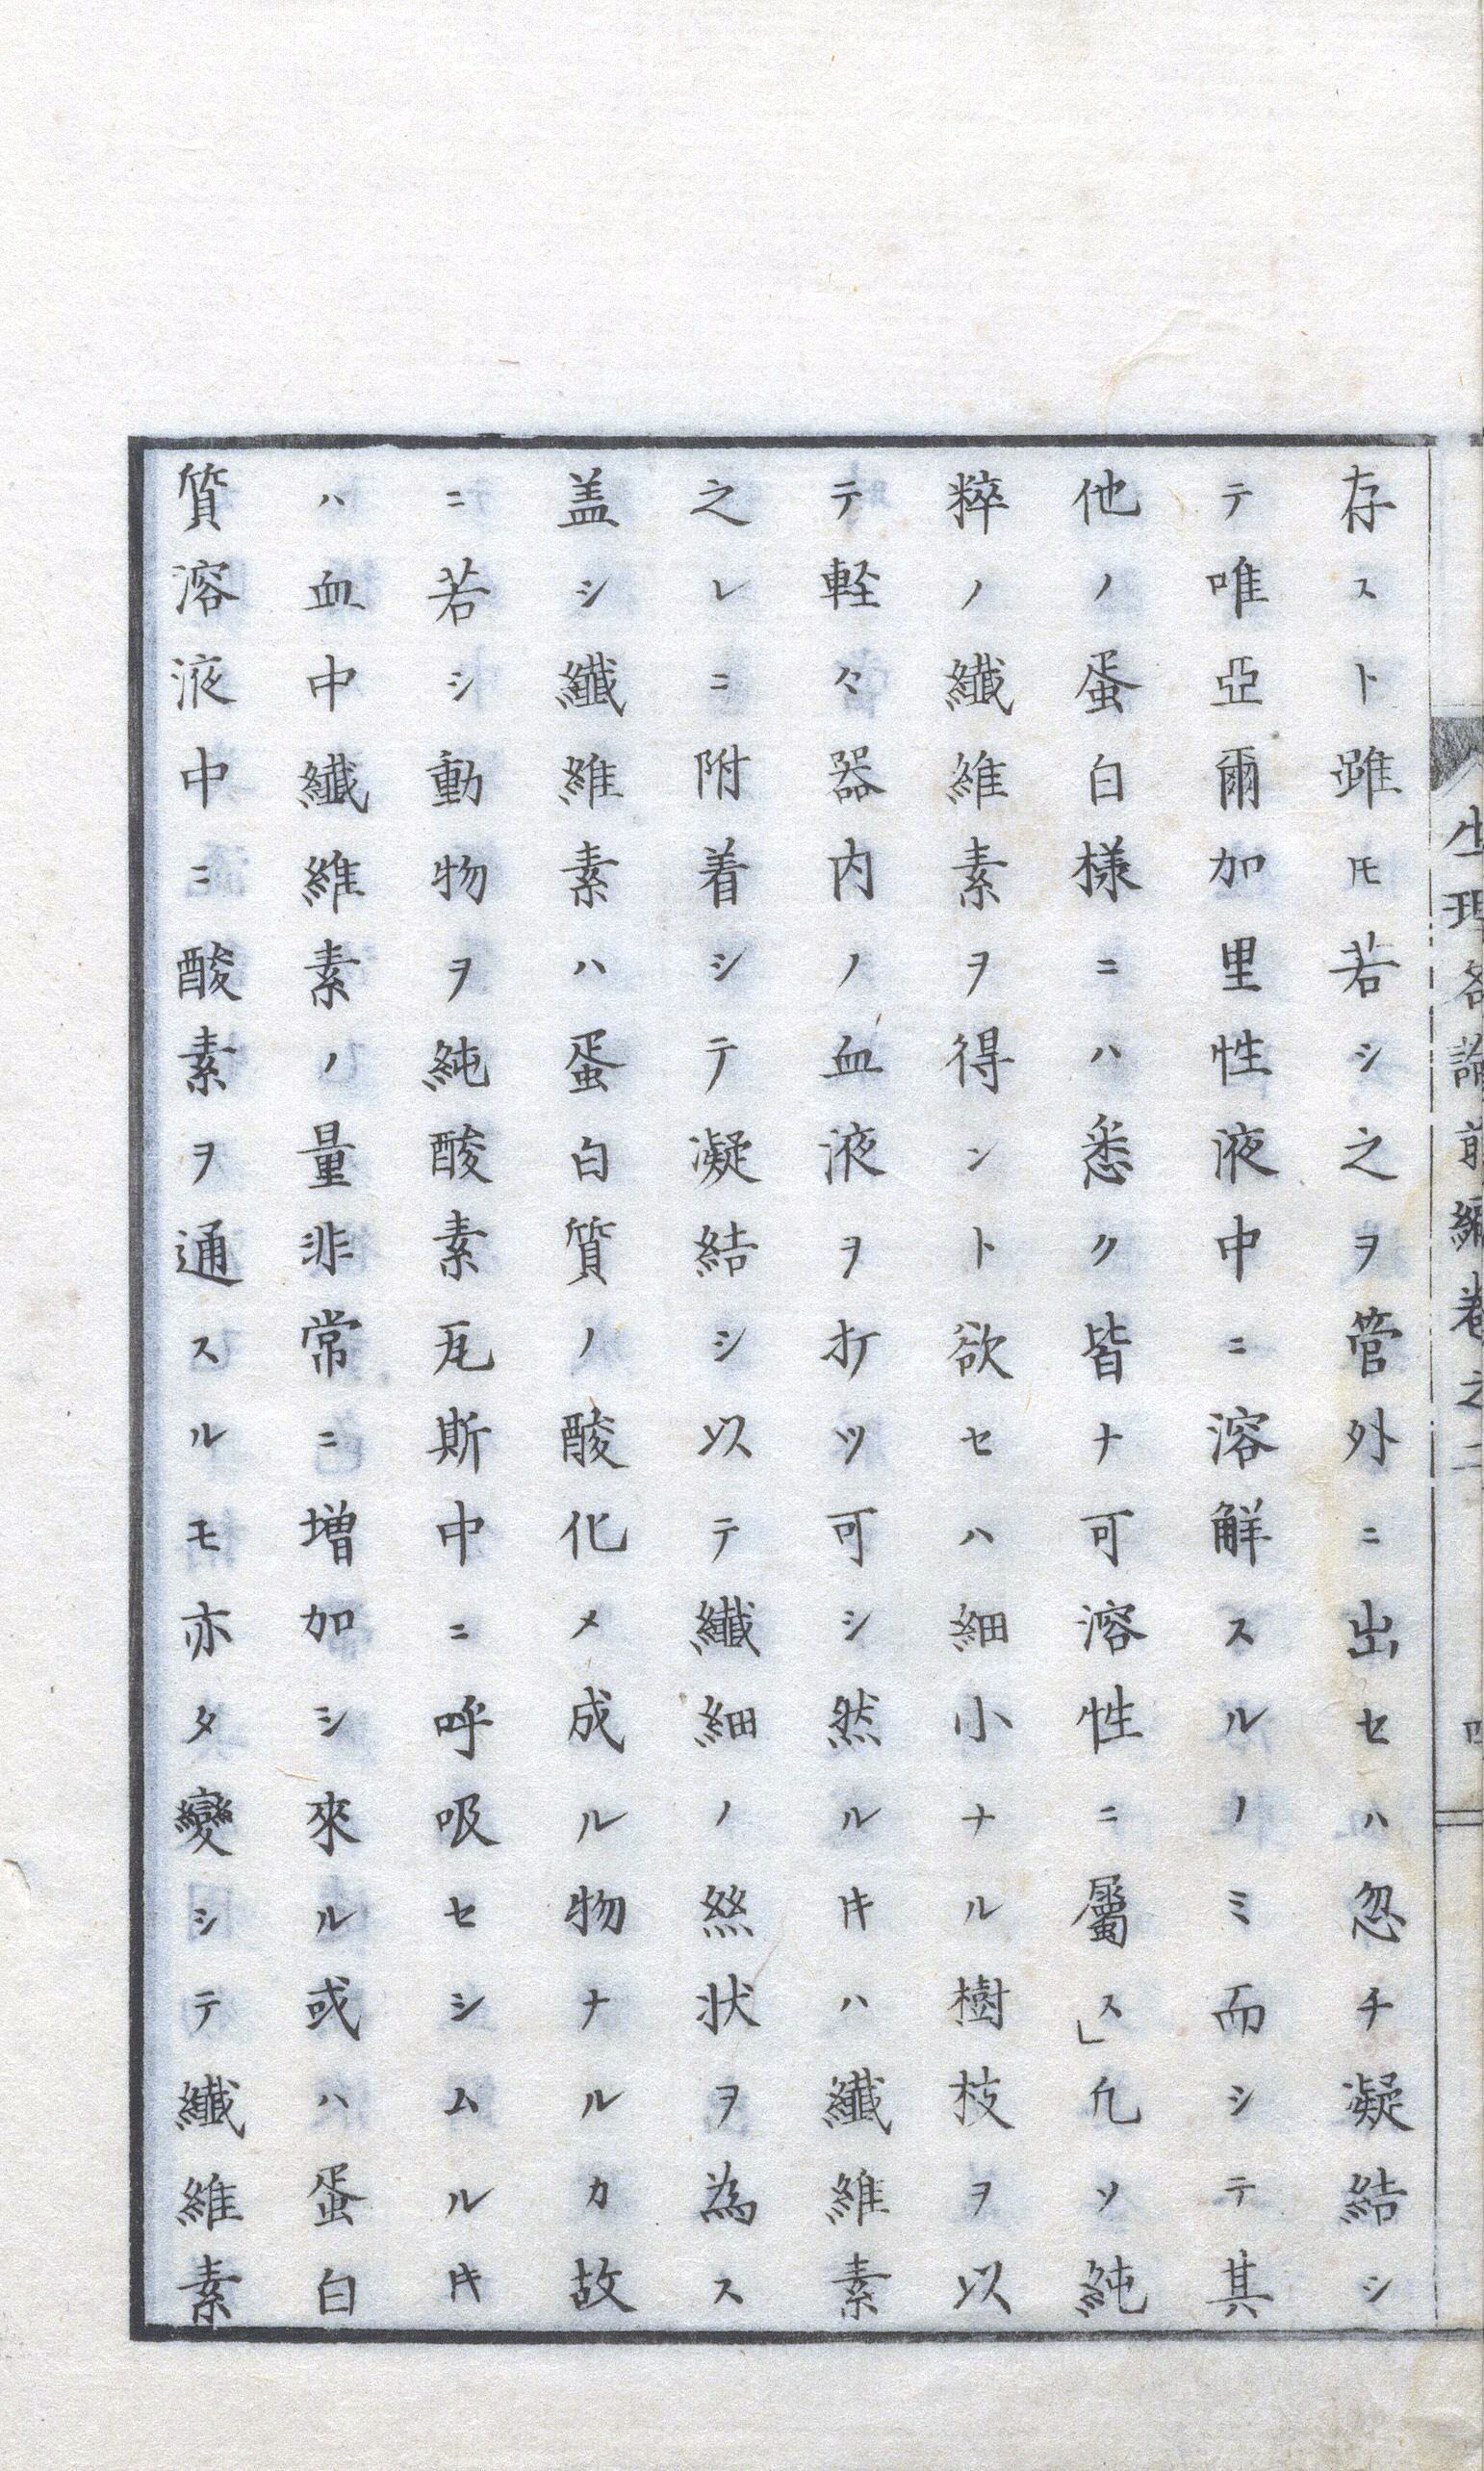 存スト雖𪜈若シ之ヲ管外ニ出セハ忽チ凝結シ
テ唯亞爾加里性液中ニ溶解スルノミ而シテ其
他ノ蛋白様ニハ悉ク皆ナ可溶性ニ屬ス」凢ソ純
粹ノ纎維素ヲ得ント欲セハ細小ナル樹枝ヲ以
テ軽々器内ノ血液ヲ打ツ可シ然ルキハ纎維素
之レニ附着シテ凝結シ以テ纎細ノ絲状ヲ為ス
盖シ纎維素ハ蛋白質ノ酸化メ成ル物ナルカ故
ニ若シ動物ヲ純酸素瓦斯中ニ呼吸セシムルキ
ハ血中纎維素ノ量非常ニ増加シ來ル或ハ蛋白
質溶液中ニ酸素ヲ通スルモ亦タ變シテ纎維素
生理
前編卷之二